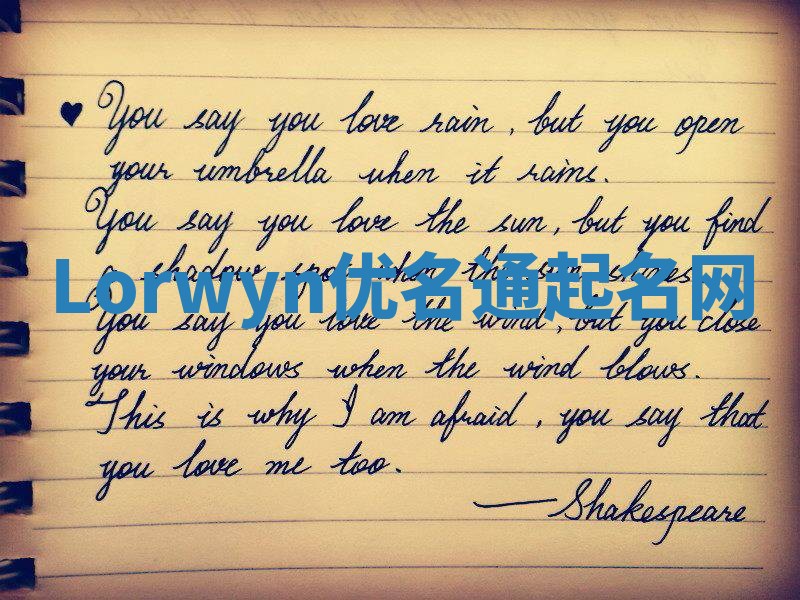 ♥ You say you love rain, but you open
your umbrella when it rains.
You say you love the sun, but you find
a shadow spot when the sun shines.
Lorwyn优名通起名网
You say you love the wind, but you close
your windows when the wind blows.
This is why I am afraid, you say that
you love me too.
—Shakespeare